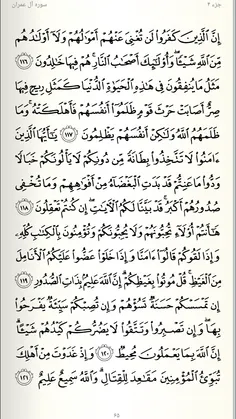 جزء ۴ سوره آل عمران
إِنَّ ٱلَّذِينَ كَفَرُوا۟ لَن تُغْنِىَ عَنْهُمْ أَمْوَٰلُهُمْ وَلَآ أَوْلَٰدُهُم
مِّنَ ٱللَّهِ شَيْـًٔا ۖ وَأُو۟لَٰٓئِكَ أَصْحَٰبُ ٱلنَّارِ ۚ هُمْ فِيهَا خَٰلِدُونَ ﴿١١٦﴾
مَثَلُ مَا يُنفِقُونَ فِى هَٰذِهِ ٱلْحَيَوٰةِ ٱلدُّنْيَا كَمَثَلِ رِيحٍ فِيهَا
صِرٌّ أَصَابَتْ حَرْثَ قَوْمٍ ظَلَمُوٓا۟ أَنفُسَهُمْ فَأَهْلَكَتْهُ ۚ وَمَا
ظَلَمَهُمُ ٱللَّهُ وَلَٰكِنْ أَنفُسَهُمْ يَظْلِمُونَ ﴿١١٧﴾ يَٰٓأَيُّهَا ٱلَّذِينَ
ءَامَنُوا۟ لَا تَتَّخِذُوا۟ بِطَانَةً مِّن دُونِكُمْ لَا يَأْلُونَكُمْ خَبَالًا
وَدُّوا۟ مَا عَنِتُّمْ قَدْ بَدَتِ ٱلْبَغْضَآءُ مِنْ أَفْوَٰهِهِمْ وَمَا تُخْفِى
صُدُورُهُمْ أَكْبَرُ ۚ قَدْ بَيَّنَّا لَكُمُ ٱلْءَايَٰتِ ۖ إِن كُنتُمْ تَعْقِلُونَ ﴿١١٨﴾
هَٰٓأَنتُمْ أُو۟لَآءِ تُحِبُّونَهُمْ وَلَا يُحِبُّونَكُمْ وَتُؤْمِنُونَ بِٱلْكِتَٰبِ كُلِّهِۦ
وَإِذَا لَقُوكُمْ قَالُوٓا۟ ءَامَنَّا وَإِذَا خَلَوْا۟ عَضُّوا۟ عَلَيْكُمُ ٱلْأَنَامِلَ
مِنَ ٱلْغَيْظِ ۚ قُلْ مُوتُوا۟ بِغَيْظِكُمْ ۗ إِنَّ ٱللَّهَ عَلِيمٌۢ بِذَاتِ ٱلصُّدُورِ ﴿١١٩﴾
إِن تَمْسَسْكُمْ حَسَنَةٌ تَسُؤْهُمْ وَإِن تُصِبْكُمْ سَيِّئَةٌ يَفْرَحُوا۟
بِهَا ۖ وَإِن تَصْبِرُوا۟ وَتَتَّقُوا۟ لَا يَضُرُّكُمْ كَيْدُهُمْ شَيْـًٔا ۗ
إِنَّ ٱللَّهَ بِمَا يَعْمَلُونَ مُحِيطٌ ﴿١٢٠﴾ وَإِذْ غَدَوْتَ مِنْ أَهْلِكَ
تُبَوِّئُ ٱلْمُؤْمِنِينَ مَقَٰعِدَ لِلْقِتَالِ ۗ وَٱللَّهُ سَمِيعٌ عَلِيمٌ ﴿١٢١﴾
۶۵